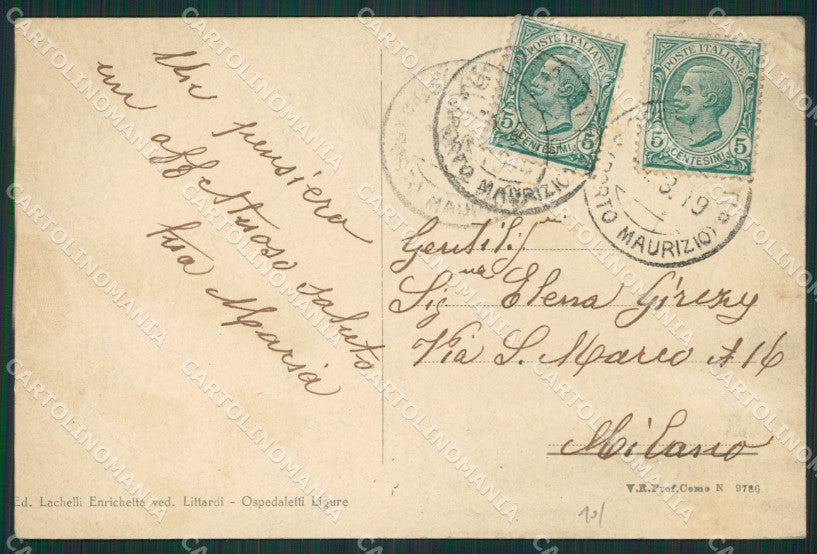 Un pensiero
un affettuoso saluto
tua Maria
POSTE ITALIANE
5 5
CENTESIMI
POSTE ITALIANE
5 5
CENTESIMI
PORTO MAURIZIO
3.19
PORTO MAURIZIO
Gentilis
Signa Elena
Via S. Marco N 16
Milano
Ed. Lachelli Enrichetta ved. Littardi - Ospedaletti Ligure
V.R.Prof.Como N 9786
10/
CARTOLINOMANIA